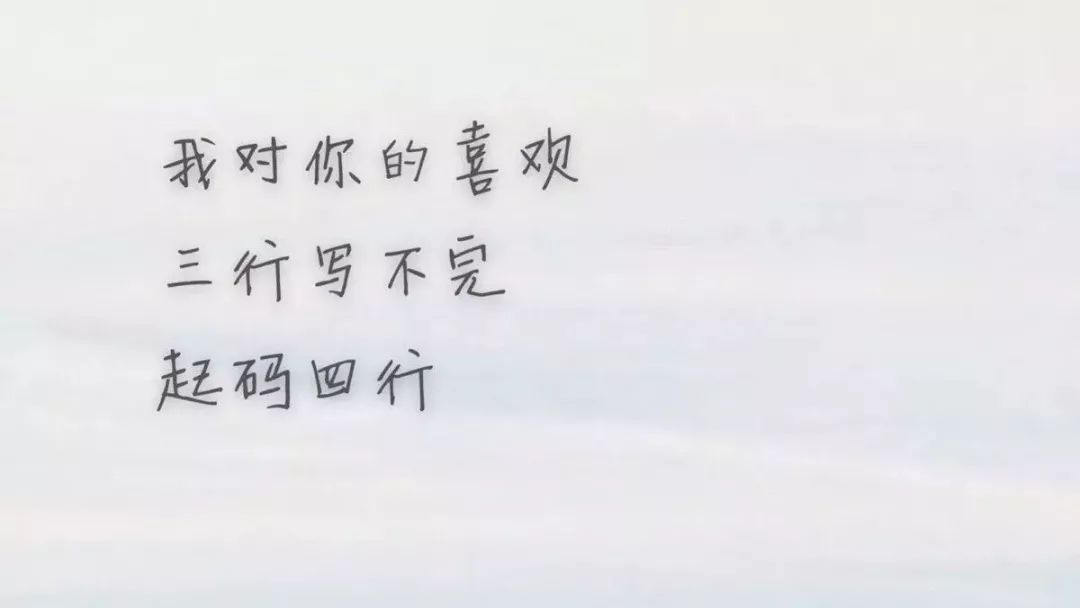 我对你的喜欢
三行写不完
起码四行